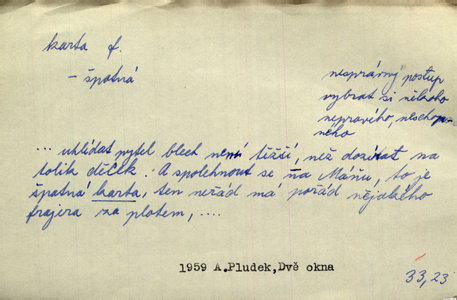 karta f.
- špatná
nesprávný postup
vybrat si někoho
nepravého, neschop-
ného
... uhlídat pytel blech není těžší, než dozírat na
tolik děček. A spolehnout se na Máňu, to je
špatná karta, ten neřád má pořád nějakého
frajera za plotem, ....
1959 A.Pludek,Dvě okna
33,23